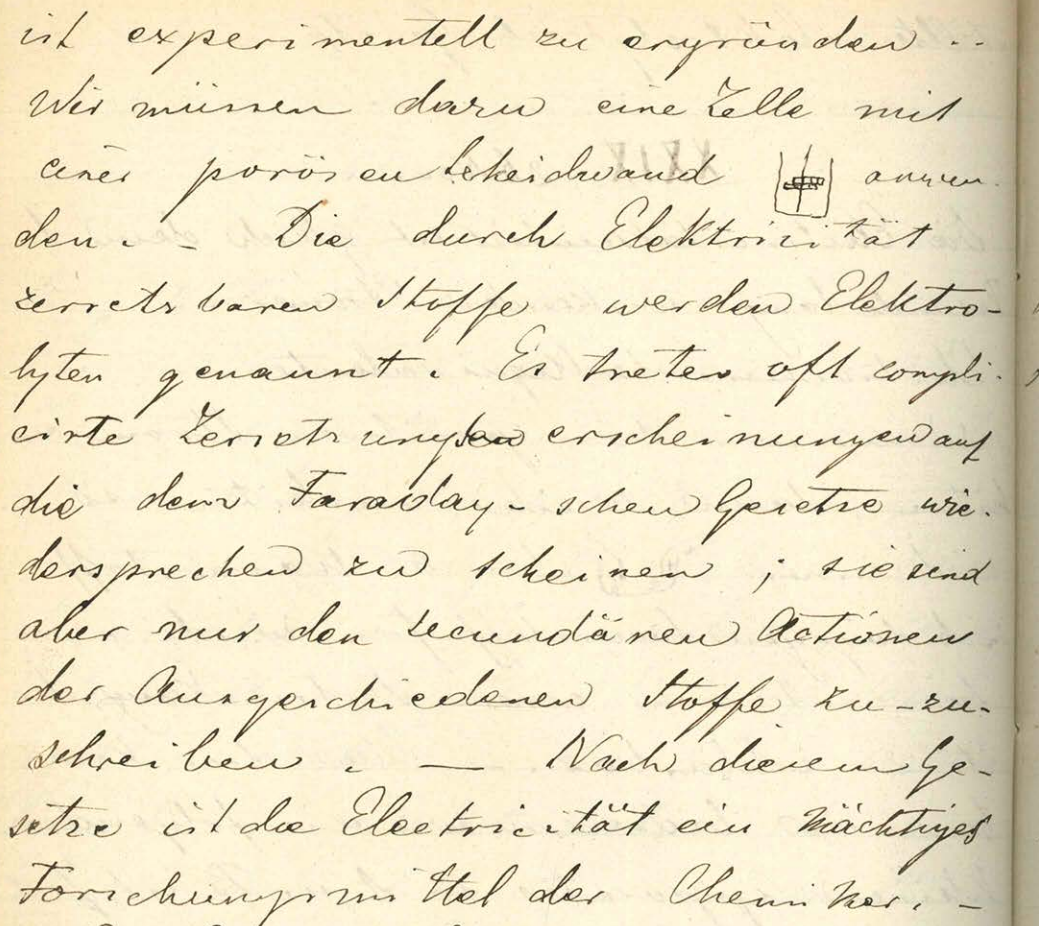 ist experimentell zu ergründen ..
Wir müssen dazu eine Zelle mit
einer porösen Scheidwand anwen-
den. – Die durch Elektricität
zersetzbaren Stoffe werden Elektro-
lyten genannt. Es treten oft compli-
cirte Zersetzungserscheinungen auf
die dem Faraday-schen Gesetze wie-
dersprechen zu scheinen ; sie sind
aber nur den secundären Actionen
der Ausgeschiedenen Stoffe zu-zu-
schreiben . — Nach diesem Ge-
setze ist die Electricität ein mächtiges
Forschungsmittel der Chemiker. –